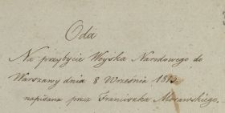 Oda
Na przybycie Woyska Narodowego do
Warszawy dnia 8 Września
napisana przez Franciszka Morawskiego.